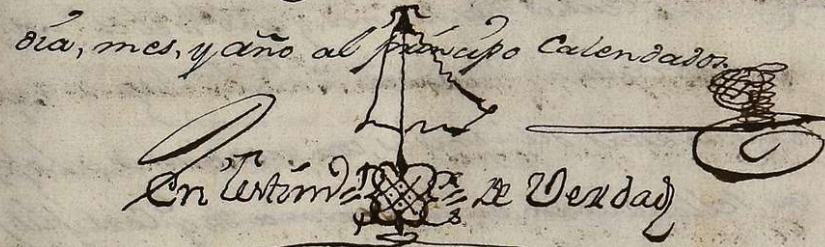 dia, mes, y año al principio Calendados.
En testim.º de Verdad